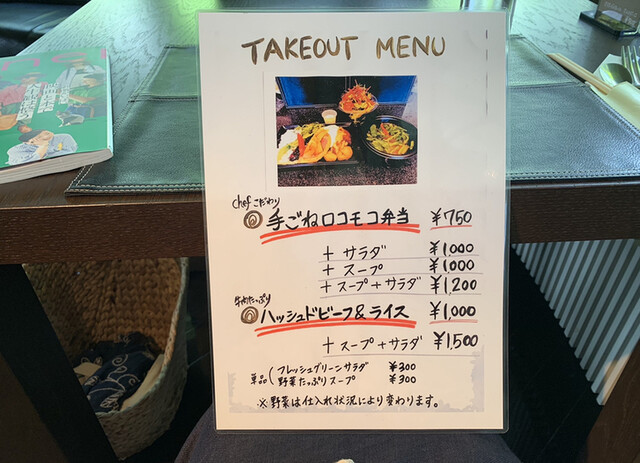 TAKEOUT MENU
chefこだわり
手ごねロコモコ弁当 ¥750
+ サラダ ¥1,000
+ スープ ¥1,000
+ スープ+サラダ ¥1,200
牛肉たっぷり
ハッシュドビーフ&ライス ¥1,000
+ スープ+サラダ ¥1,500
単品( フレッシュグリーンサラダ ¥300
野菜たっぷりスープ ¥300
※野菜は仕入れ状況により変わります。